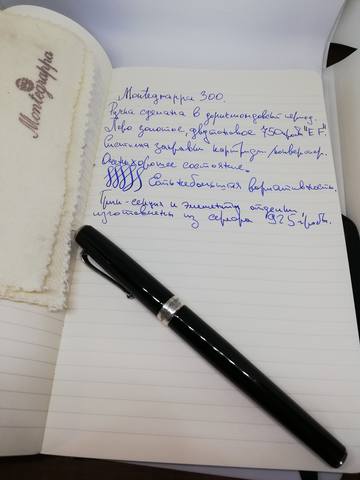 Montegrappa
Montegrappa 300.
Ручка сделана в ричмондовский период.
Перо золотое, двутоновое, 750 пробы "EF".
Система заправки картридж/конвертер.
Отличное состояние.
Есть небольшая вариативность.
Грип-секция и элементы отделки
изготовлены из серебра 925 пробы.